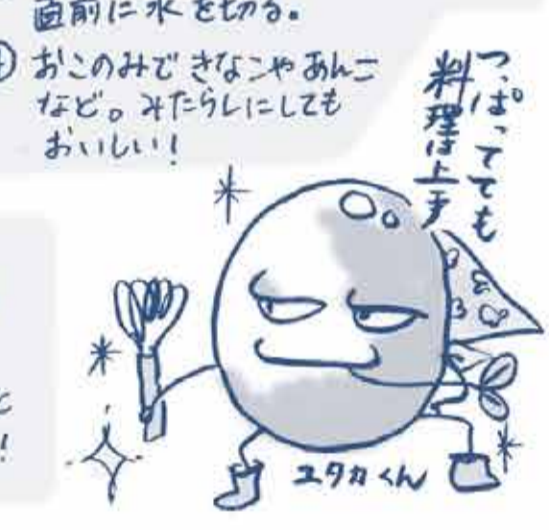 直前に水を切る。
④ おこのみで きなこや あんこ
など。みたらしにしても
おいしい！
つっぱってても
料理は上手
ユタカくん
！